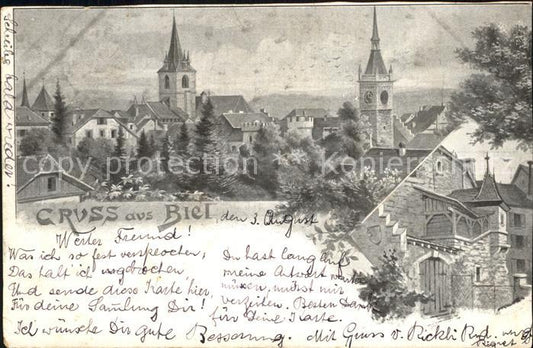 Schreibe bald wieder!
copyright
GRUSS aus BIEL
den 3. August
Werter Freund!
Was ich so fest versprochen,
Das halt ich ungbrochen
Und sende diese Karte hier
Für deine Samlung Dir!
Ich wünsche Dir gute Besserung.
Du hast lang auf
meine Antwort warten
müssen, must mir
verzeihen. Besten Dank
für Deine Karte.
Mit Gruss v. Rickli Rud.